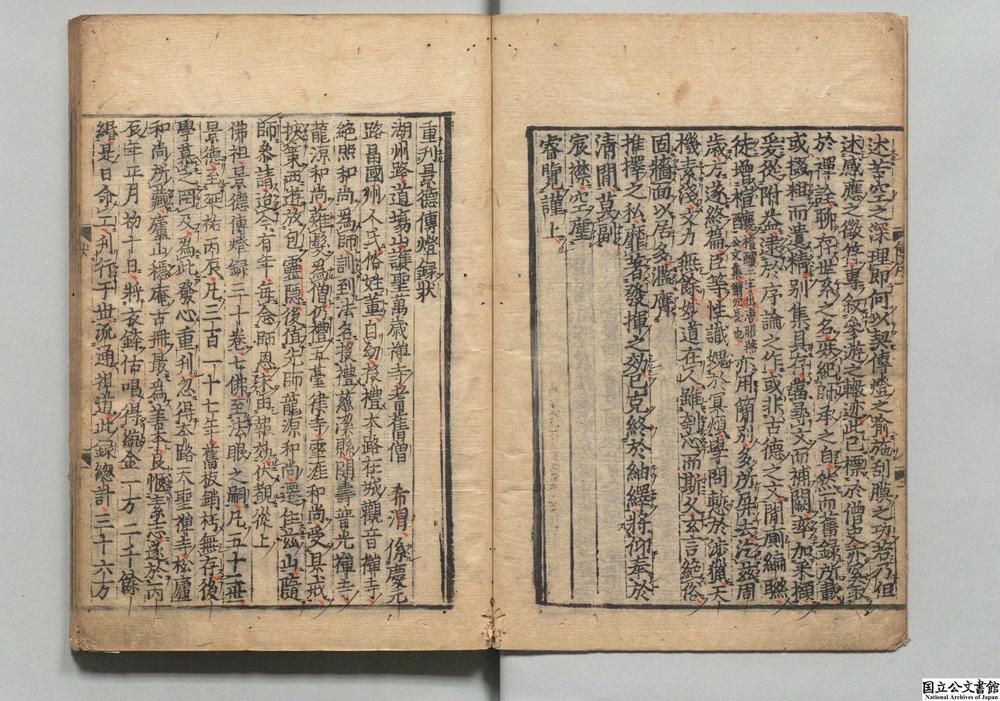 述苦空之深理即何以契傳燈之喻施刮膜之功若乃但
述感應之徵符專叙參游之轍迹此已標於僧史亦奚取
於禪詮聊存世系之名庶紀師承之自然而舊錄所載
或掇粗而遺精別集具存當尋文而補闕率加采擷
爰從附益逮於序論之作或非古德之文間厠編聯
徒增楦釀楦釀二字出唐張燕公文集謂冗長也亦用簡別多所屏去汔茲周
歳方遂終篇臣等性識媿於冥煩學問慙於涉獵天
機素淺文力無餘妙道在人雖刳心而斯久玄言絶俗
固牆面以居多濫膺
推擇之私靡著發揮之効已克終於紬繹將仰奉於
清閒莫副
宸襟空塵
睿覽謹上
重刋景德傳燈錄狀
湖州路道塲山護聖萬歳禪寺耆舊僧希渭係慶元
路昌國州人氏俗姓董自幼投禮本路在城觀音禪寺
絶照和尚為師訓到法名授禮慈溪縣開壽普光禪寺
龍源和尚髮為僧仍禮五臺律寺雲涯和尚受具戒
西遊包靈隱後值先師龍源和尚遷住茲山隨
師叅請迨今有年每念師恩報効伏覩從上
佛祖景德傳燈錄三十卷七佛至法眼之嗣凡五十二世
景德至延祐丙辰凡三百一十七年舊板銷朽無存後
學慕之罔及為此發心重刋忽得本路天聖禪寺松廬
和尚所藏廬山穩庵古冊最為善本良愜素志遂於丙
辰年正月初十日將衣鉢估唱得統金一万二千餘
緡是日命工刋行于世流通祖道此錄總計三十六万
国立公文書館
National Archives of Japan